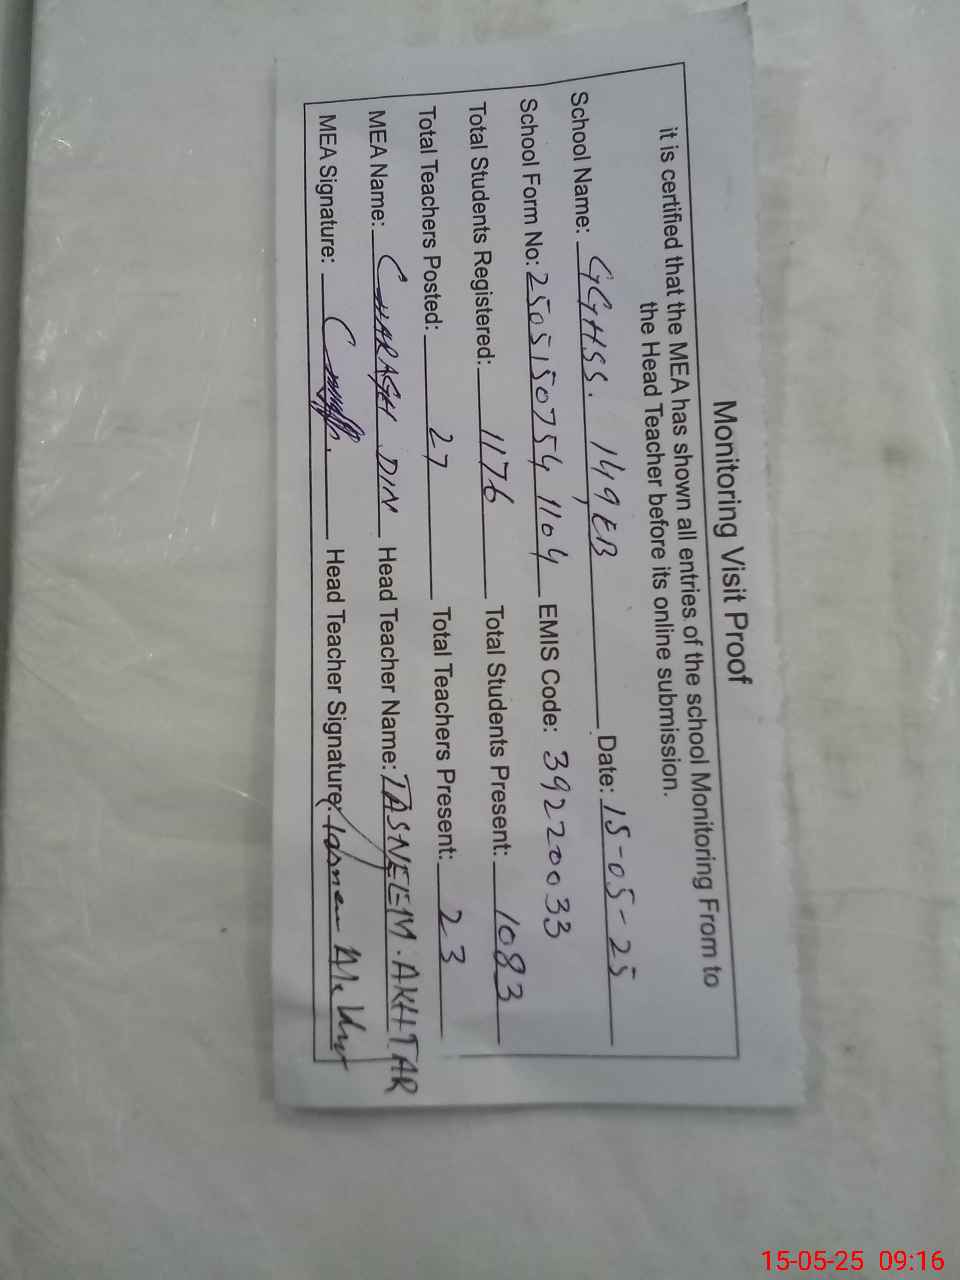 Monitoring Visit Proof
it is certified that the MEA has shown all entries of the school Monitoring From to
the Head Teacher before its online submission.
School Name: GGHSS. 149EB Date: 15-05-25
School Form No: 25051507541104 EMIS Code: 39220033
Total Students Registered: 1176 Total Students Present: 1083
Total Teachers Posted: 27 Total Teachers Present: 23
MEA Name: CHARAGH DIN Head Teacher Name: TASNEEM.AKHTAR
MEA Signature: Head Teacher Signature: Tasneem Akhtar
15-05-25 09:16